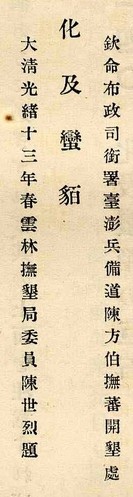 欽命布政司銜署臺澎兵備道陳方伯撫蕃開墾處
化及蠻貊
大淸光緒十三年春雲林撫墾局委員陳世烈題